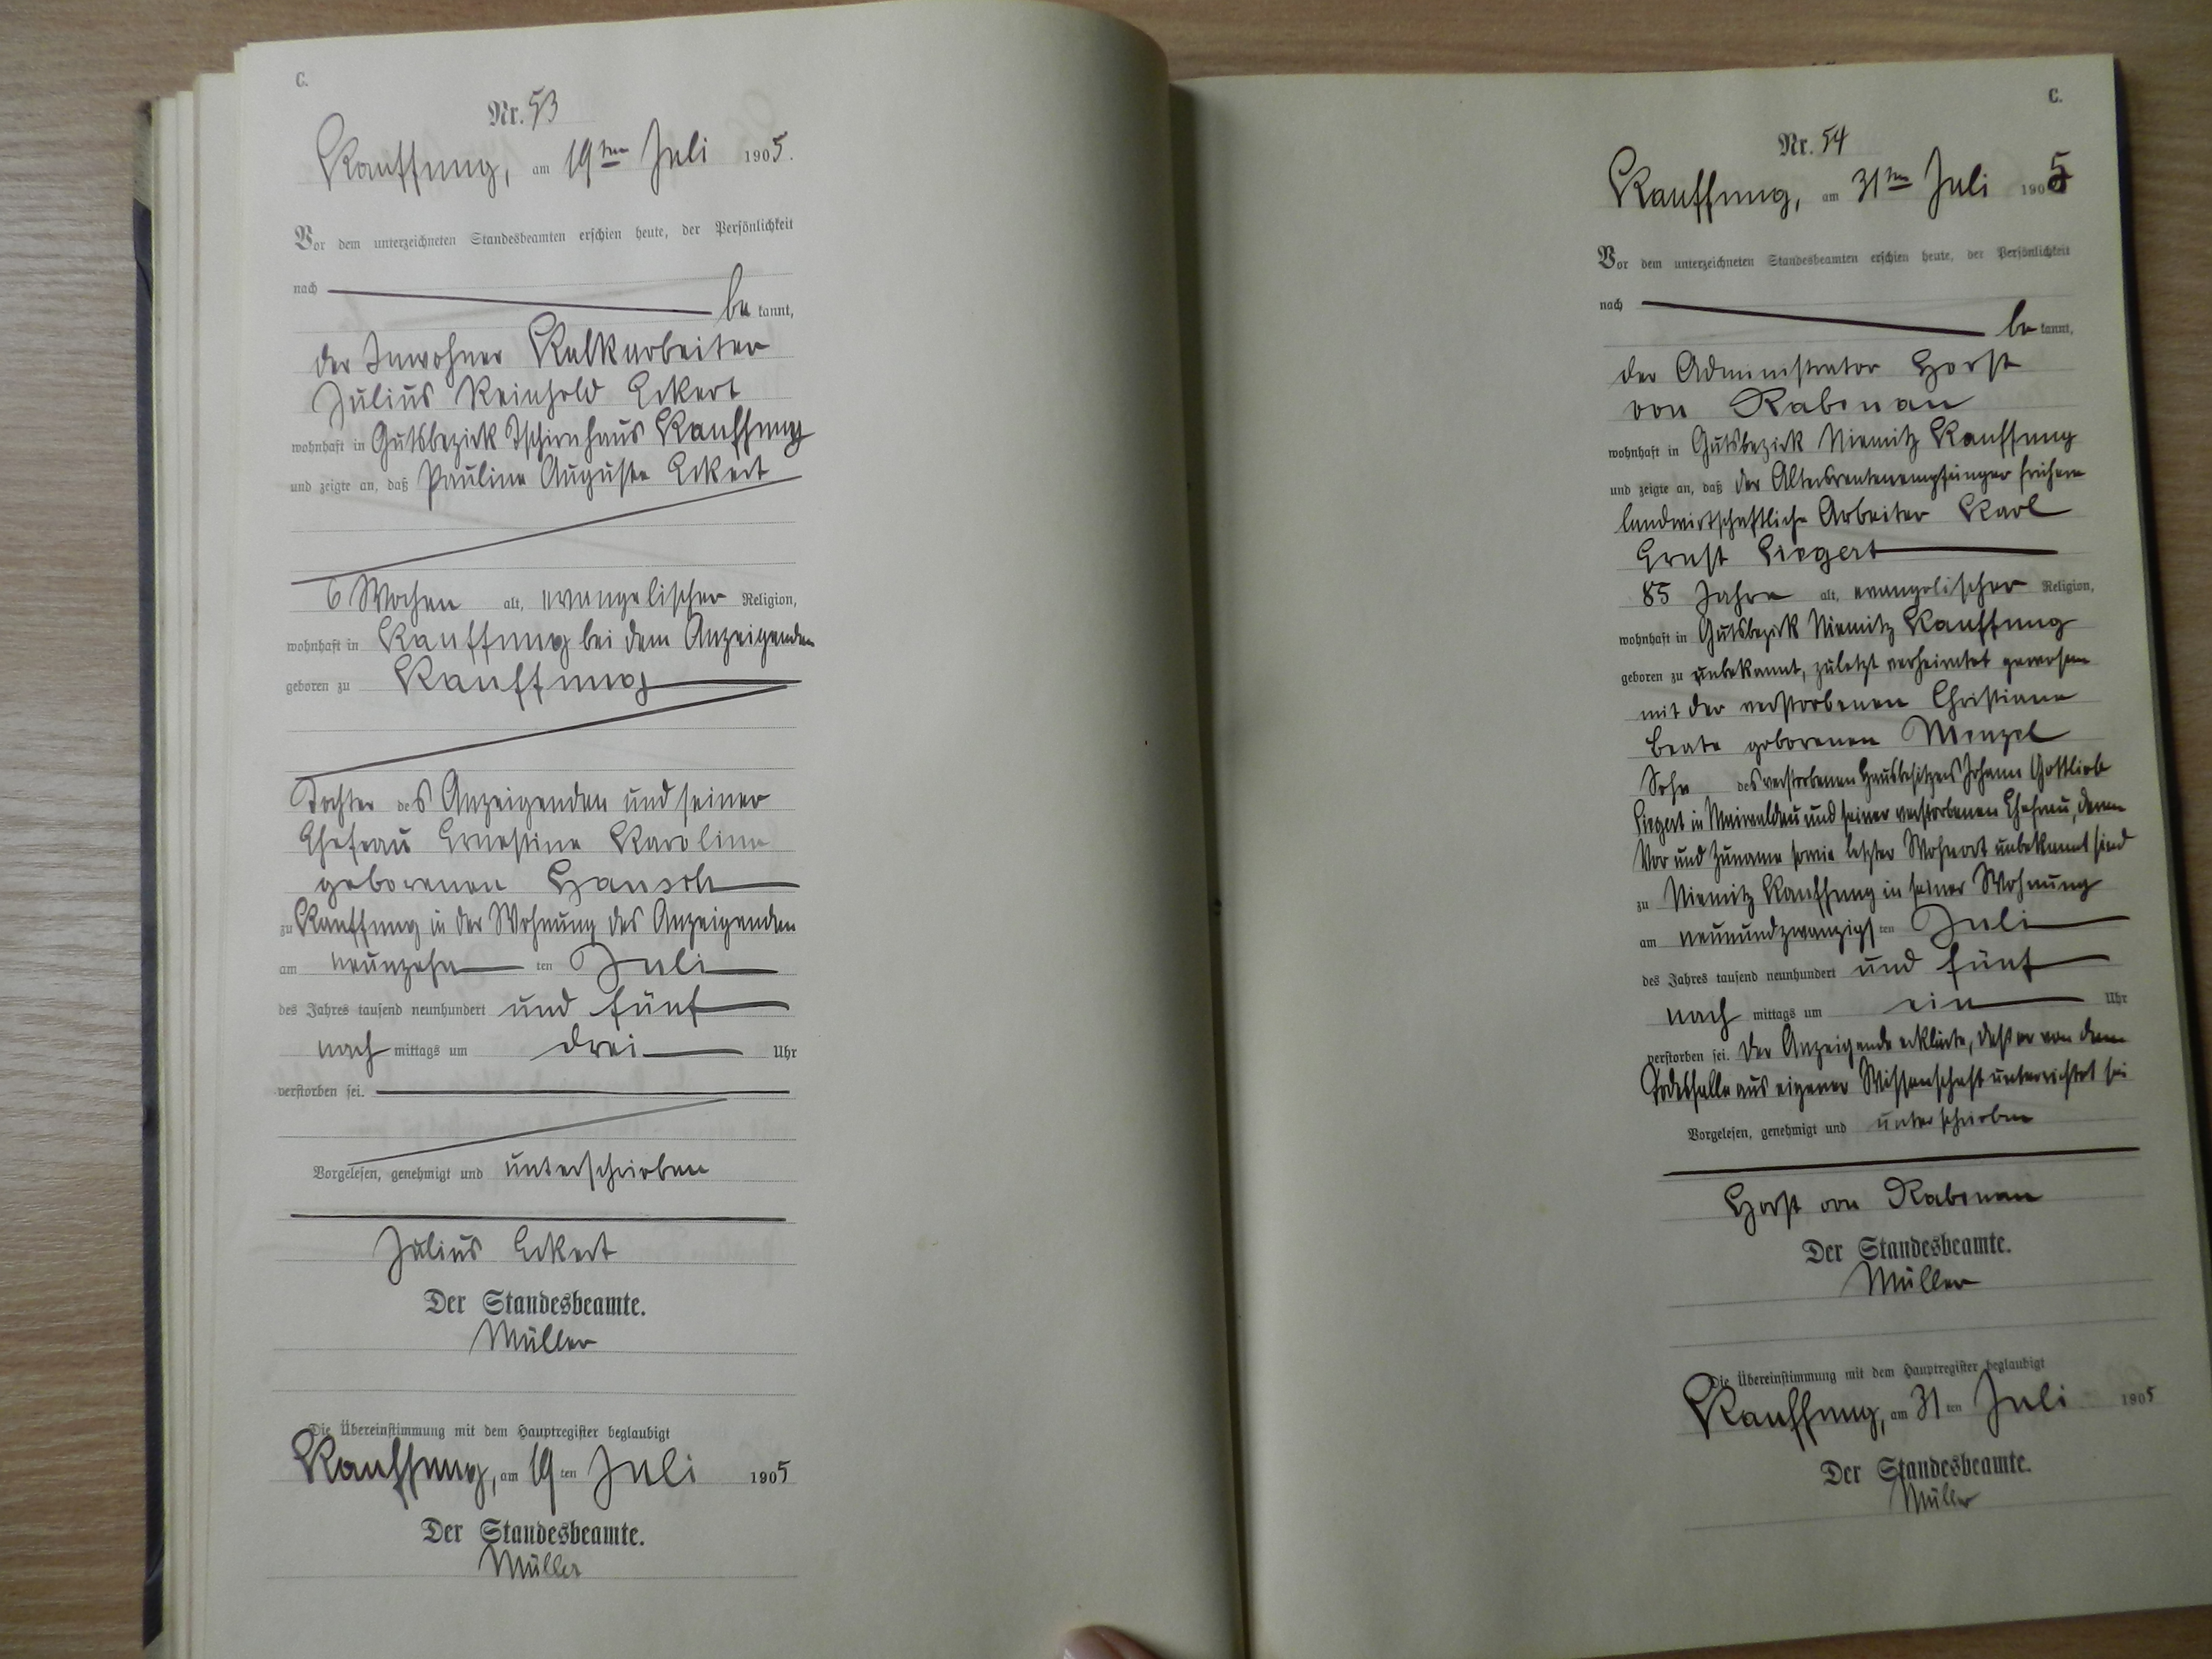 C.
Nr. 53
Kauffung, am 19ten Juli 1905.
Vor dem unterzeichneten Standesbeamten erschien heute, der Persönlichkeit
nach be kannt,
der Inwohner Kalkarbeiter
Julius Reinhold Eckert
wohnhaft in Gutsbezirk Tschirnhaus Kauffung
und zeigte an, daß Pauline Auguste Eckert
6 Wochen alt, evangelischer Religion,
wohnhaft in Kauffung bei dem Anzeigenden
geboren zu Kauffung
Tochter des Anzeigenden und seiner
Ehefrau Ernestine Karoline
geborenen Hansch
zu Kauffung in der Wohnung des Anzeigenden
am neunzehn ten Juli
des Jahres tausend neunhundert und fünf
nach mittags um drei Uhr
verstorben sei.
Vorgelesen, genehmigt und unterschrieben
Julius Eckert
Der Standesbeamte.
Müller
Die Übereinstimmung mit dem Hauptregister beglaubigt
Kauffung, am 19 ten Juli 1905
Der Standesbeamte.
Müller
C.
Nr. 54
Kauffung, am 31ten Juli 1905
Vor dem unterzeichneten Standesbeamten erschien heute, der Persönlichkeit
nach be kannt,
der Administrator Horst
von Rabenau
wohnhaft in Gutsbezirk Niemitz Kauffung
und zeigte an, daß der Altersrentenempfänger frühere
landwirtschaftliche Arbeiter Karl
Ernst Siegert
85 Jahre alt, evangelischer Religion,
wohnhaft in Gutsbezirk Niemitz Kauffung
geboren zu unbekannt, zuletzt verheiratet gewesen
mit der verstorbenen Christiane
Beate geborenen Menzel
Sohn des verstorbenen Hausbesitzers Johann Gottlieb
Siegert in Maiwaldau und seiner verstorbenen Ehefrau, deren
Vor und Zuname sowie letzter Wohnort unbekannt sind
zu Niemitz Kauffung in seiner Wohnung
am neunundzwanzigs ten Juli
des Jahres tausend neunhundert und fünf
nach mittags um ein Uhr
verstorben sei. Der Anzeigende erklärte, daß er von dem
Todesfalle aus eigener Wissenschaft unterrichtet sei
Vorgelesen, genehmigt und unterschrieben
Horst von Rabenau
Der Standesbeamte.
Müller
Die Übereinstimmung mit dem Hauptregister beglaubigt
Kauffung, am 31 ten Juli 1905
Der Standesbeamte.
Müller